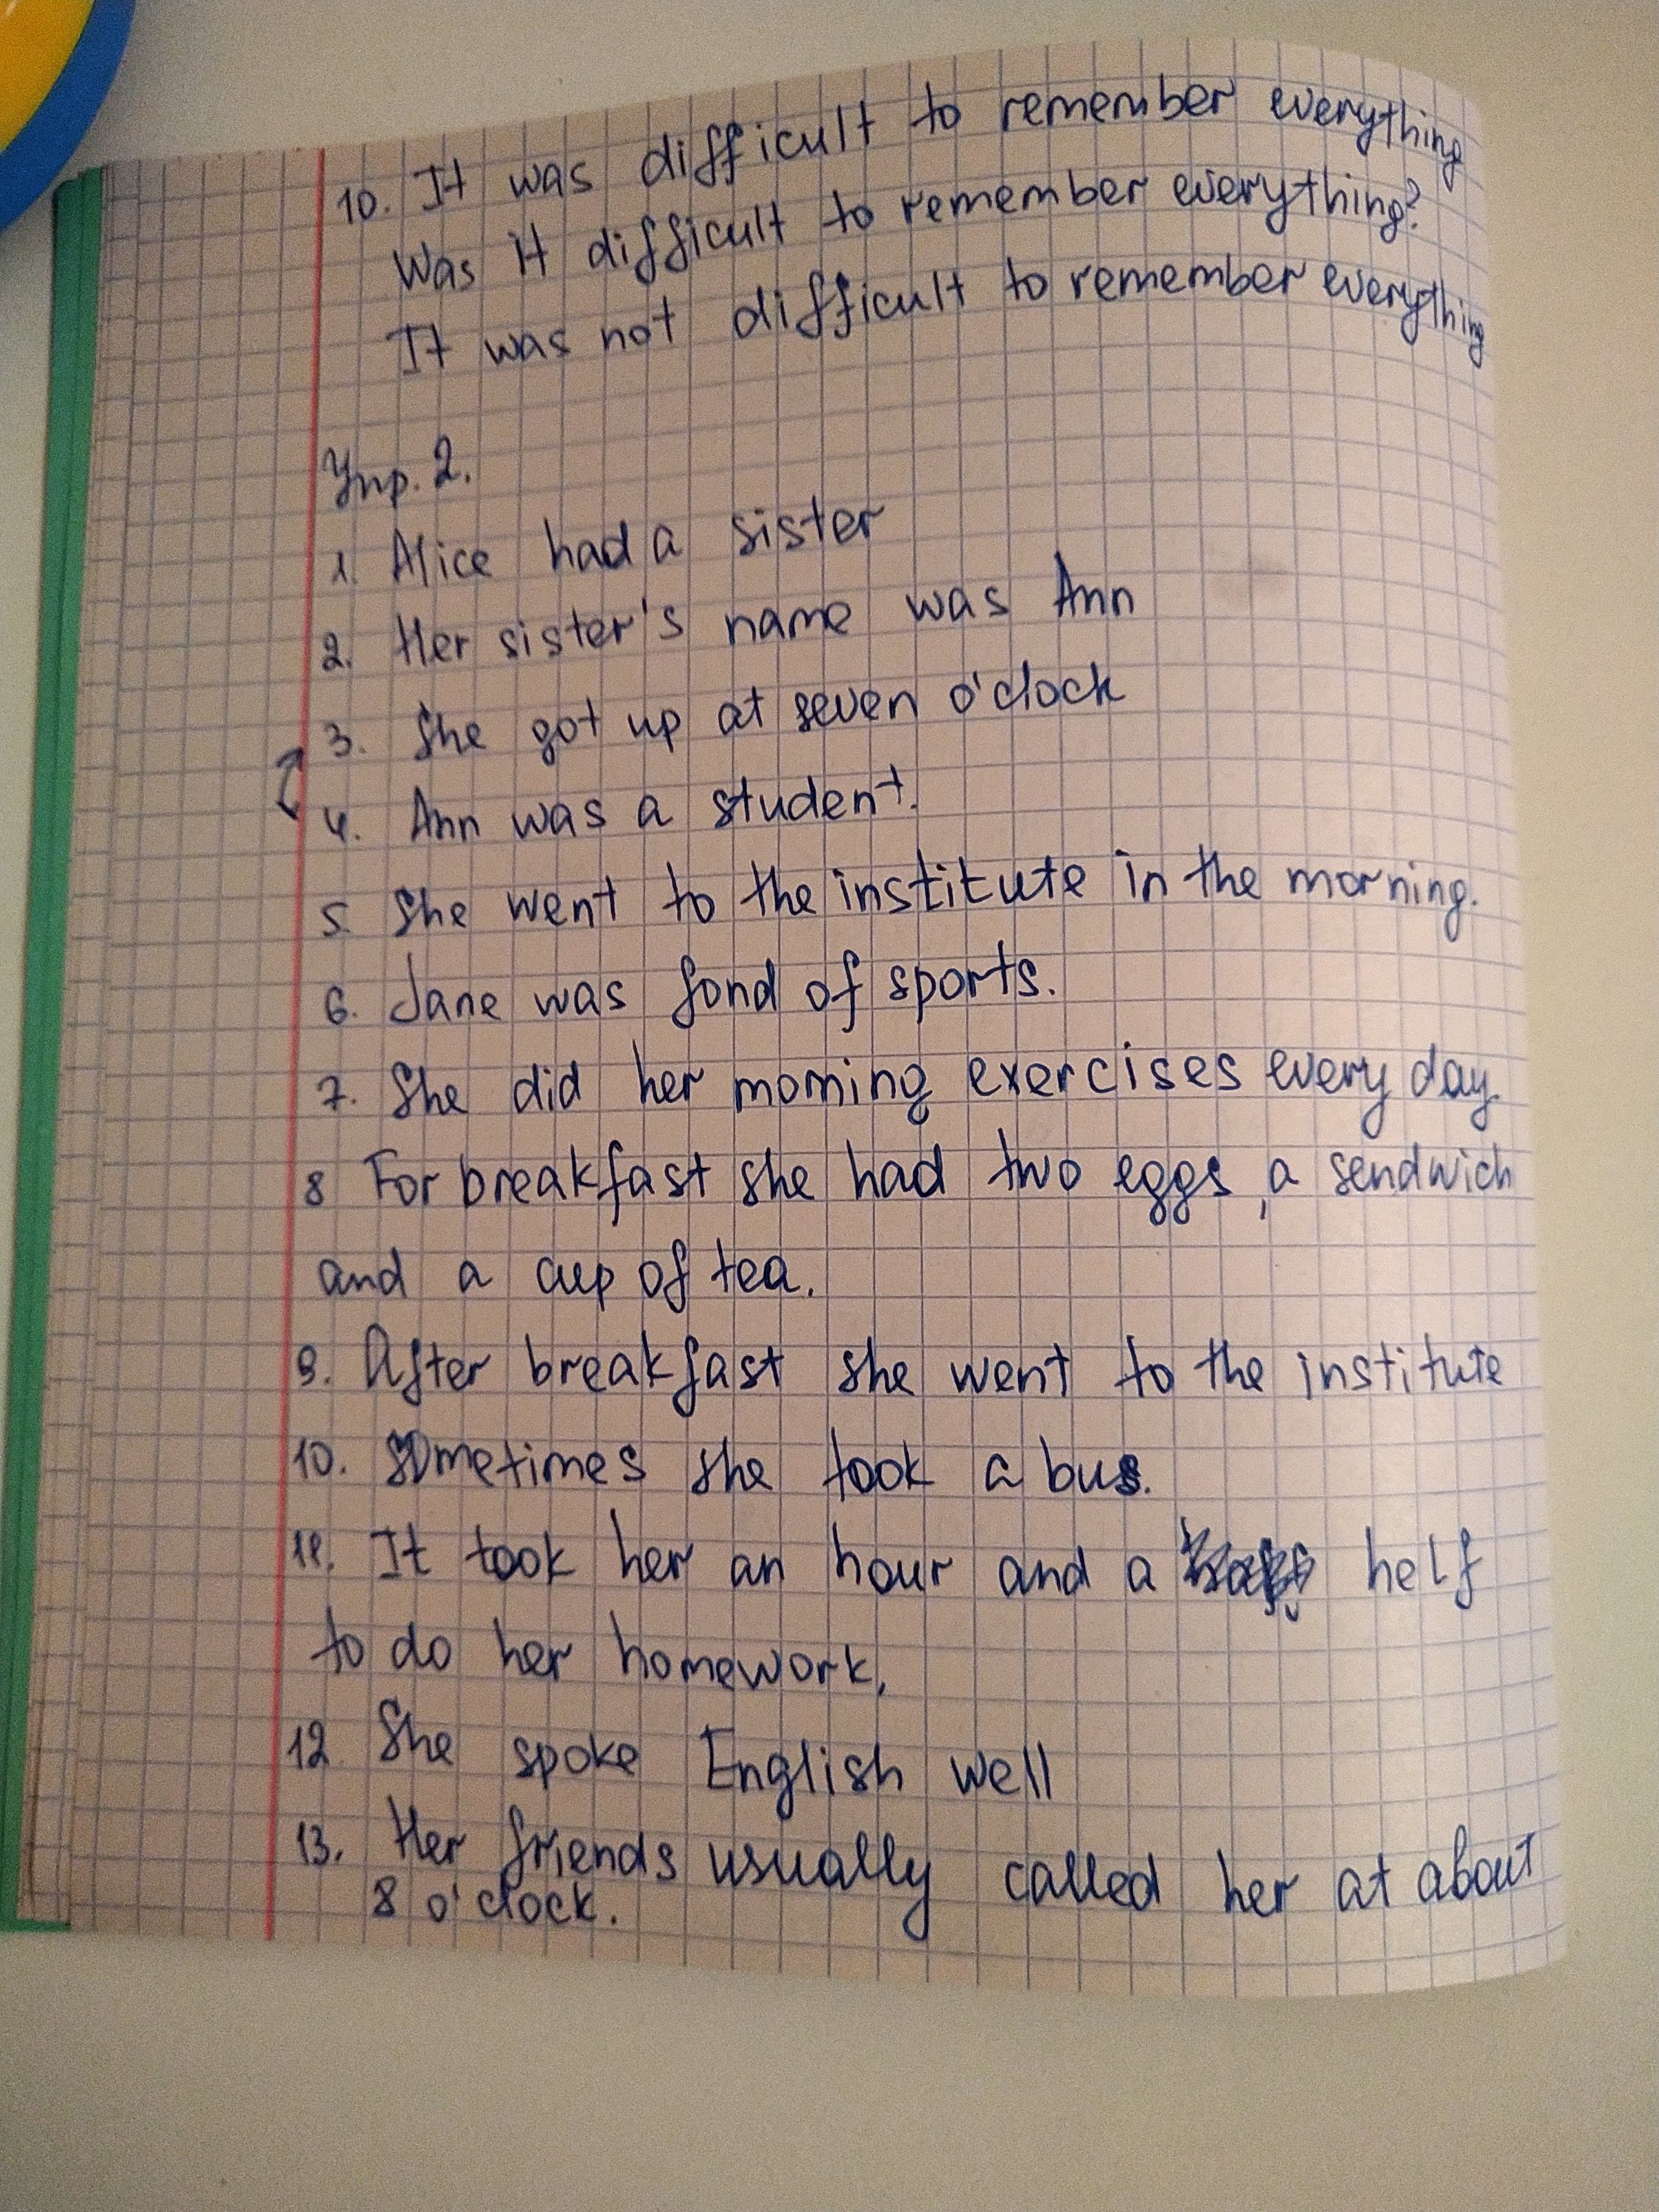 10. It was difficult to remember everything
Was it difficult to remember everything?
It was not difficult to remember everything
Упр. 2.
1. Alice had a sister
2. Her sister's name was Ann
3. She got up at seven o'clock
4. Ann was a student.
5. She went to the institute in the morning.
6. Jane was fond of sports.
7. She did her morning exercises every day.
8 For breakfast she had two eggs, a sendwich
and a cup of tea.
9. After breakfast she went to the institute
10. Sometimes she took a bus.
11. It took her an hour and a helf
to do her homework.
12 She spoke English well
13. Her friends usually called her at about
8 o'clock.